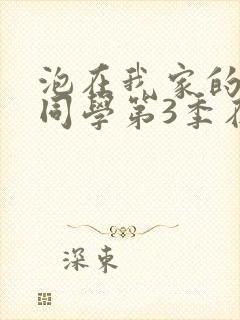 泡在我家的
同學第3季在
深東